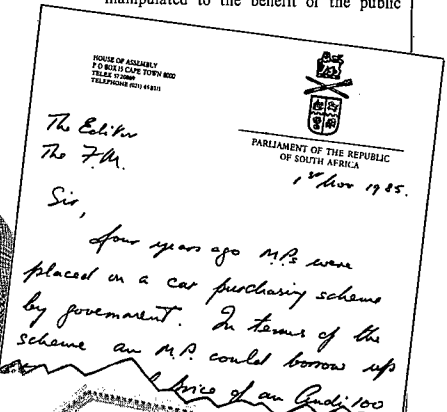 manipulated to the benefit of the public
HOUSE OF ASSEMBLY
P O BOX 15 CAPE TOWN 8000
TELEX 5720869
TELEPHONE (021)
PARLIAMENT OF THE REPUBLIC
OF SOUTH AFRICA
1st Nov 1985.
The Editor
The F.M.
Sir,
four years ago M.P.s were
placed on a car purchasing scheme
by government. In terms of the
scheme an M.P. could borrow up
price of an Audi 100